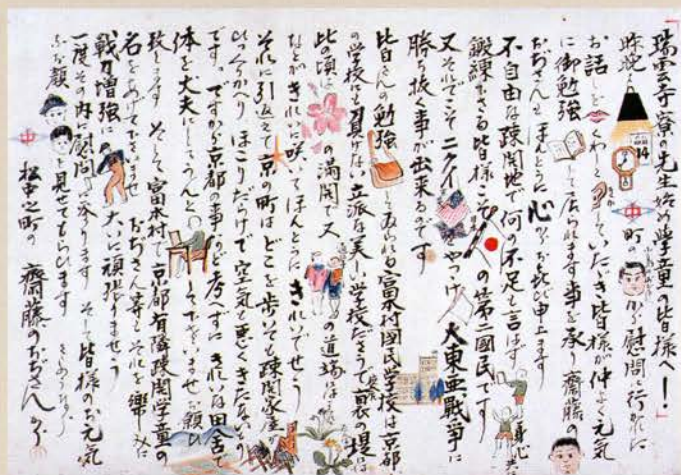 「瑞雲寺寮の先生始め学童の皆様へー!」
昨晩 14 中町 から慰問に行かれ
お話しをくわしくきかしていただき皆様が仲よく元気
に御勉強して居られます事を承り齋藤の
おぢさんもほんとうに心からお喜び申上ます
不自由な疎開地で何の不足も言はず身心を
鍛練なさる皆様こそへの第二國民です
又それでこそニクイをやっつけ大東亜戦争に
勝ち抜く事が出来るのです
皆さんの勉強して居られる富本村國民学校は京都
の学校にも負けない立派な美しい学校ださうで裏の堤は
此の頃はの満開で又の道端は
などがきれいに咲いてほんとうにきれいでせう
それに引返えて京の町はどこを歩いても疎開家屋が
ひっくりかへりほこりだらけで空気も悪くきたないの
です、ですから京都の事など考へずにきれいな田舎で
体を丈夫にしてうんとして下さいませお願ひ
致します そして富本村で京都有隣疎開学童の
名をあげて下さいませ おぢさん等もそれを楽しみに
戦力増強に大いに頑張りませう
一度その内慰問に参ります そして皆様のお元気
な顔を見せてもらひます さようなら
中 松本之町の齋藤のおぢさんから